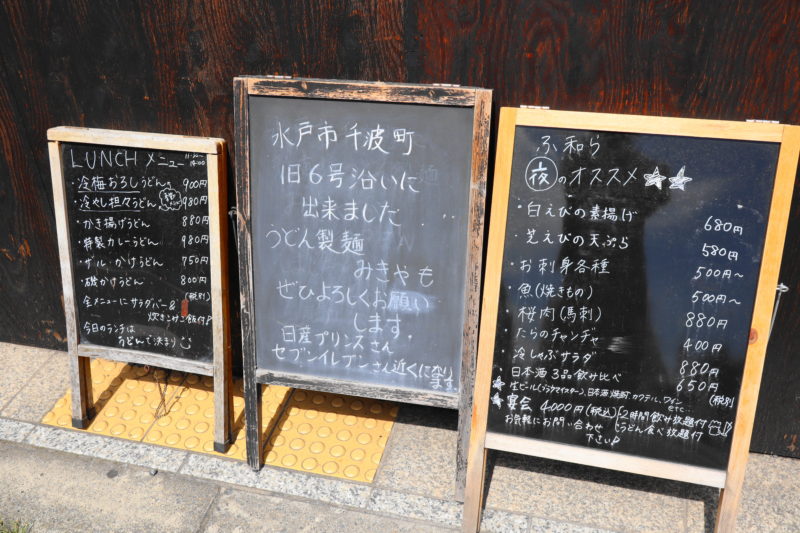 LUNCH メニュー
・冷梅おろしうどん 900円
・冷やし担々うどん 980円
・かき揚げうどん 880円
・特製カレーうどん 980円
・ザル・かけうどん 750円
・磯かけうどん 800円
(税別)
全メニューにサラダバー&
炊きこみご飯付♪
今日のランチは
うどんで決まり
水戸市千波町
旧6号沿いに
出来ました
うどん製麺
みきやも
ぜひよろしくお願い
します。
日産プリンスさん
セブンイレブンさん近くになります。
ふ和ら
夜のオススメ★★
・白えびの素揚げ 680円
・芝えびの天ぷら 580円
・お刺身各種 500円〜
・魚(焼きもの) 500円〜
・桜肉(馬刺) 880円
・たらのチャンヂャ 400円
・冷しゃぶサラダ 880円
・日本酒3品飲み比べ 650円
(税別)
★生ビール(ブラウマイスター)、日本酒、焼酎、カクテル、ワイン etc...
★宴会 4000円(税込) 2時間飲み放題付
うどん食べ放題付
お気軽にお問い合わせ
下さい♪